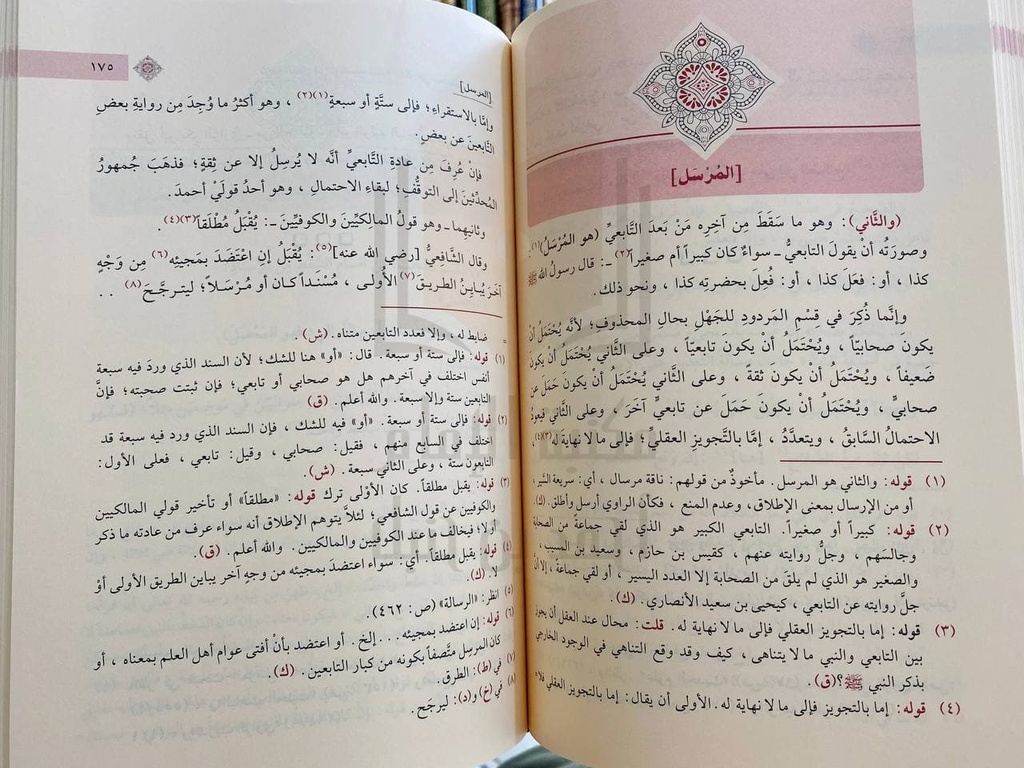 [المُرْسَل]
(والثَّاني): وهو ما سَقَطَ مِن آخِرِه مَنْ بَعدَ التَّابعيِّ (هو المُرْسَلُ)(١):
وصورَتُه أنْ يقولَ التابعيُّ ـ سواءٌ كان كبيراً أم صغيراً(٢) ـ: قال رسولُ الله ﷺ
كذا ، أو: فعَلَ كذا ، أو: فُعِلَ بحضرتِه كذا ، ونحو ذلك.
وإنَّما ذُكِرَ في قِسْمِ المَردودِ للجَهْلِ بحالِ المحذوفِ؛ لأنه يُحْتَمَلُ أنْ
يكونَ صحابيّاً ، ويُحْتَمَلُ أنْ يكونَ تابعيّاً ، وعلى الثَّاني يُحْتَمَلُ أنْ يكونَ
ضَعيفاً ، ويُحْتَمَلُ أنْ يكونَ ثقةً ، وعلى الثَّاني يُحْتَمَلُ أنْ يكونَ حَمَلَ عن
صحابيٍّ ، ويُحْتَمَلُ أنْ يكونَ حَمَلَ عن تابعيٍّ آخَرَ ، وعلى الثَّاني فيعودُ
الاحتمالُ السَّابقُ ، ويتعدَّدُ ، إمَّا بالتَّجويزِ العقليِّ؛ فإلى ما لا نهايةَ له(٣)(٤)،
(١) قوله: والثاني هو المرسل. مأخوذٌ من قولهم: ناقة مرسال ، أي: سريعة السَّير ،
أو من الإرسال بمعنى الإطلاق، وعدم المنع ، فكأن الراوي أرسل وأطلق. (ك).
(٢) قوله: كبيراً أو صغيراً. التابعي الكبير هو الذي لقي جماعةً من الصحابة
وجالسهم ، وجلُّ روايته عنهم ، كقيس بن حازم ، وسعيد بن المسيب ،
والصغير هو الذي لم يلقَ من الصحابة إلا العدد اليسير ، أو لقي جماعة، إلا أنَّ
جلَّ روايته عن التابعي ، كيحيى بن سعيد الأنصاري. (ك).
(٣) قوله: إما بالتجويز العقلي فإلى ما لا نهاية له. قلت: محال عند العقل أن يجوز
بين التابعي والنبي ما لا يتناهى ، كيف وقد وقع التناهي في الوجود الخارجي
بذكر النبي ﷺ؟(ق).
(٤) قوله: إما بالتجويز فإلى ما لا نهاية له. الأَولى أن يقال: إما بالتجويز العقلي فلا
١٧٥
[المرسل]
وإمَّا بالاستقراءِ؛ فإلى ستَّةٍ أو سبعةٍ(١)(٢) ، وهو أكثرُ ما وُجِدَ مِن روايةِ بعضِ
التَّابعينَ عن بعضٍ.
فإنْ عُرِفَ مِن عادةِ التَّابعيِّ أنَّه لا يُرسِلُ إلا عن ثِقةٍ؛ فذهَبَ جُمهورُ
المُحدِّثينَ إلى التوقُّفِ؛ لبقاءِ الاحتمالِ ، وهو أحدُ قولَيْ أحمدَ.
وثانيهِما ـ وهو قولُ المالِكيِّينَ والكوفيِّينَ ـ: يُقْبَلُ مُطْلَقاً(٣)(٤).
وقال الشَّافِعيُّ [رضي الله عنه](٥): يُقْبَلُ إنِ اعْتَضَدَ بمجيئِه(٦) مِن وَجْهٍ
آخَرَ يُبايِنُ الطريقَ(٧) الأُولى ، مُسْنَداً كان أو مُرْسَلاً؛ ليترجَّحَ(٨) . .
= ضابط له ، وإلا فعدد التابعين متناه. (ش).
(١) قوله: فإلى ستة أو سبعة. قال: «أو» هنا للشك؛ لأن السند الذي وردَ فيه سبعة
أنفس اختلف في آخرهم هل هو صحابي أو تابعي؛ فإن ثبتت صحبته؛ فإنَّ
التابعين ستة وإلا سبعة. والله أعلم. (ق)
(٢) قوله: فإلى ستة أو سبعة. «أو» فيه للشك ، فإن السند الذي ورد فيه سبعة قد
اختلف في السابع منهم ، فقيل: صحابي ، وقيل: تابعي ، فعلى الأول:
التابعون ستة ، وعلى الثاني سبعة. (ش).
(٣) قوله: يقبل مطلقاً. كان الأَوْلى ترك قوله: «مطلقاً» أو تأخير قولي المالكيين
والكوفيين عن قول الشافعي؛ لئلَّا يتوهم الإطلاق أنه سواء عرف من عادته ما ذكر
أولا؛ فيخالف ما عند الكوفيين والمالكيين. والله أعلم. (ق).
(٤) قوله: يقبل مطلقاً. أي: سواء اعتضد بمجيئه من وجهٍ آخر يباين الطريق الأولى أوْ
لا. (ك).
(٥) انظر: «الرسالة» (ص: ٤٦٢).
(٦) قوله: إن اعتضد بمجيئه . . . إلخ. أو اعتضد بأنْ أفتى عوام أهل العلم بمعناه ، أو
كان المرسِل متَّصفاً بكونه من كبار التابعين. (ك).
(٧) في (ط): الطرق.
(٨) في (خ) و(د): ليرجَح.